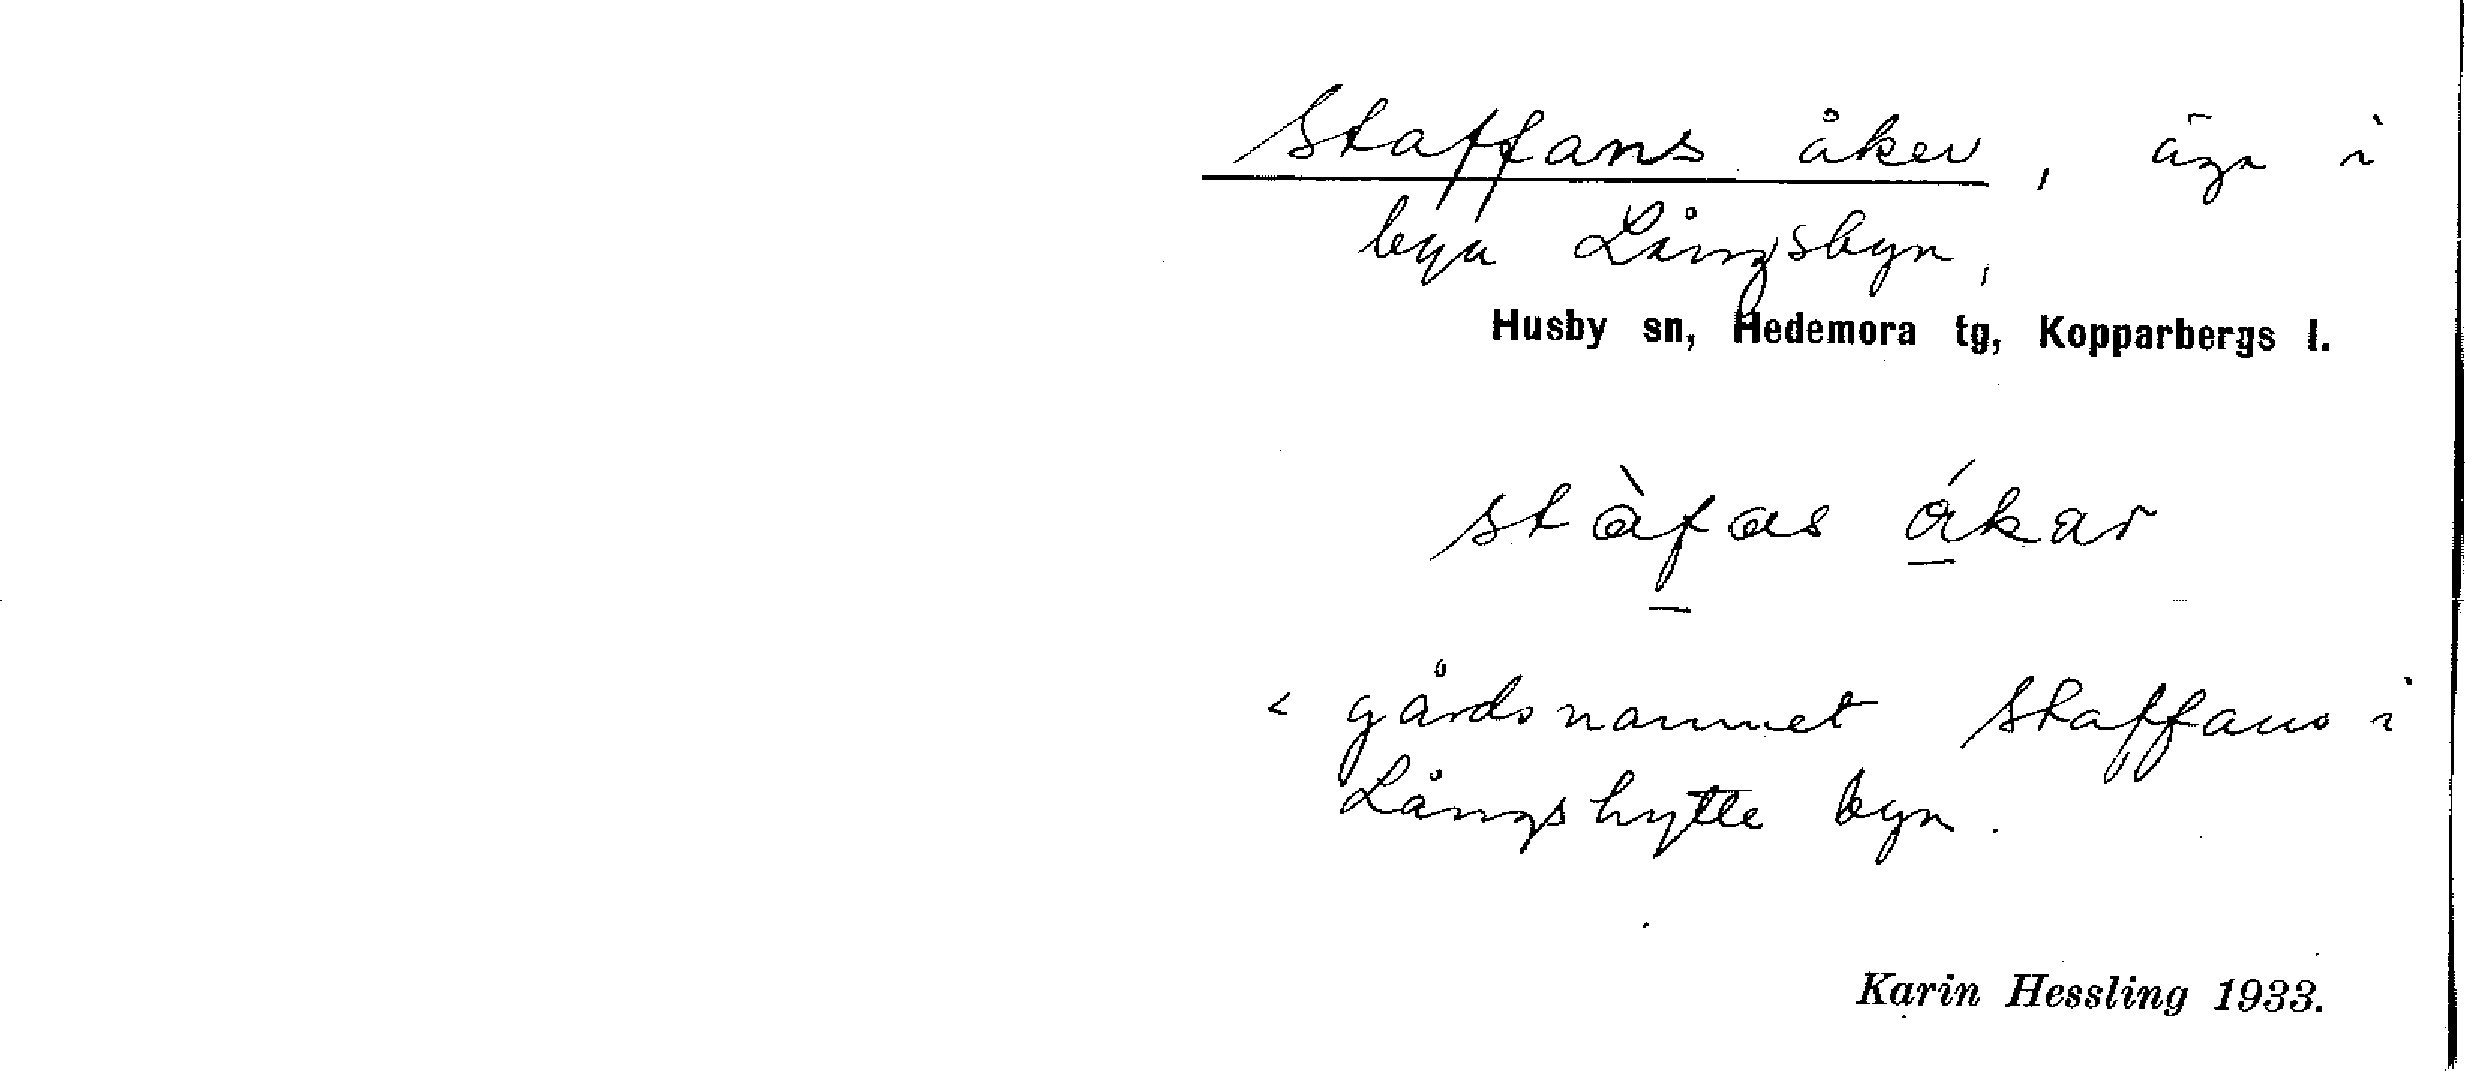 Staffans åker, äga i
byn Långsbyn,
Husby sn, Hedemora tg, Kopparbergs l.
stàfas ákar
< gårdsnamnet Staffans i
Långshytte byn.
Karin Hessling 1933.